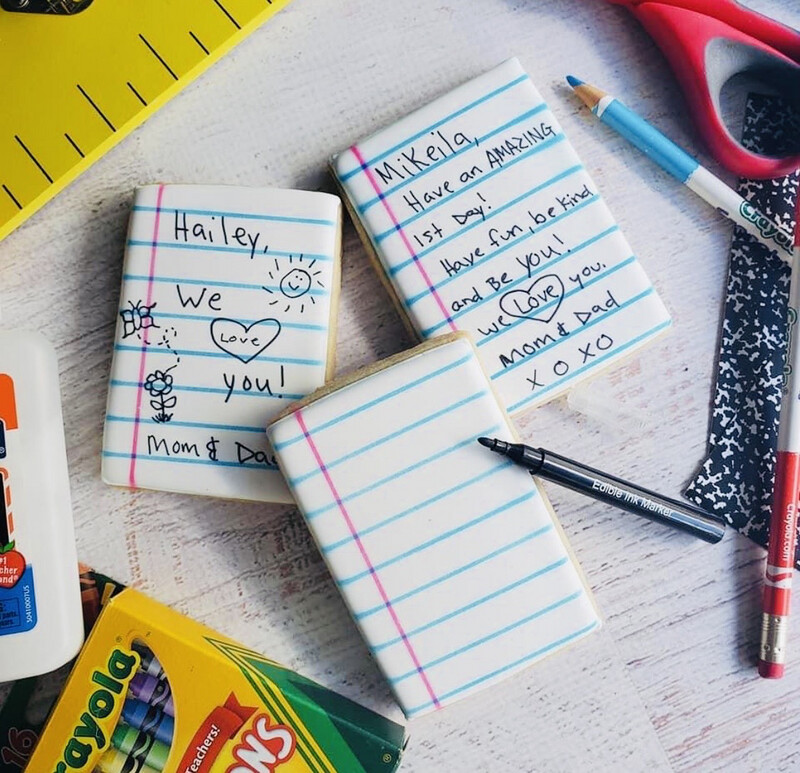 Mikeila,
Have an AMAZING
1st Day!
Have fun, be kind
and Be you!
we Love you.
Mom & Dad
X O XO
Hailey,
We
Love
you!
Mom & Da
Edible Ink Marker
Crayola
Crayola.com
#1
cher
and®
rayola
Teachers!
ONS
16